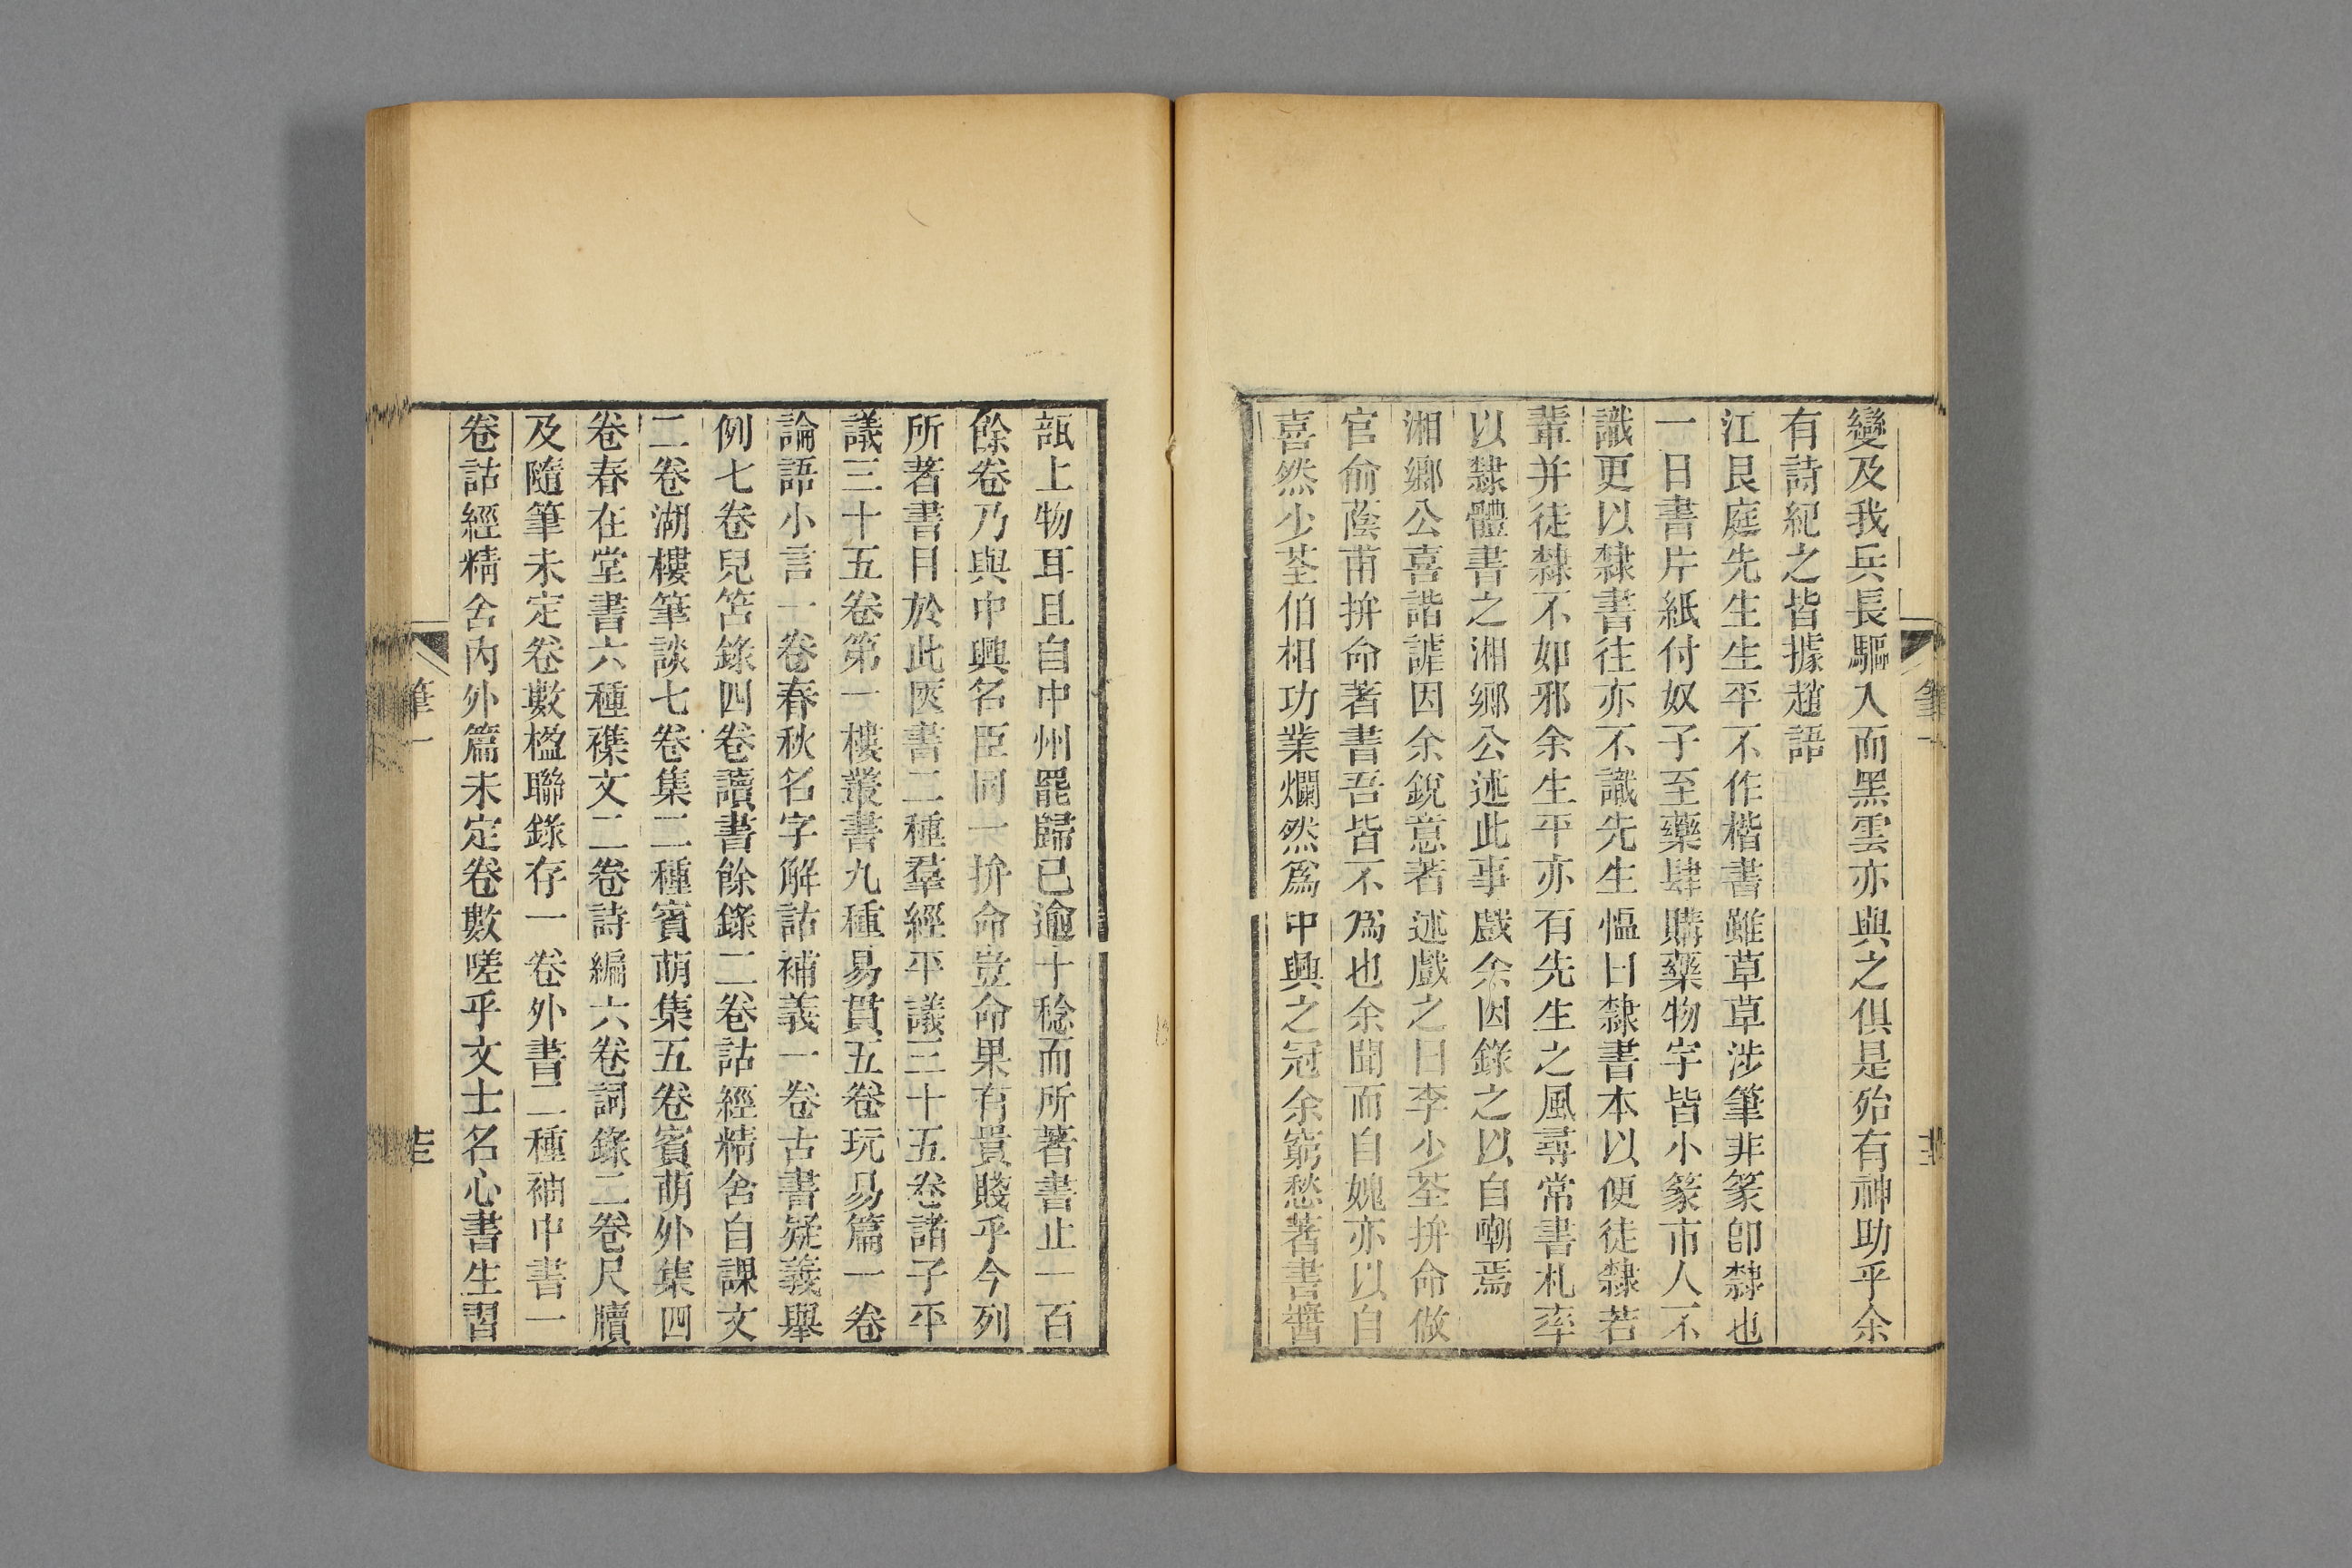 變及我兵長驅入而黑雲亦與之俱是殆有神助乎余
有詩紀之皆據趙語
江艮庭先生生平不作楷書雖草草涉筆非篆卽隸也
一日書片紙付奴子至藥肆購藥物字皆小篆市人不
識更以隸書往亦不識先生慍曰隸書本以便徒隸若
輩并徒隸不如邪余生平亦有先生之風尋常書札率
以隸體書之湘鄉公述此事戲余因錄之以自嘲焉
湘鄉公喜諧謔因余銳意著述戲之曰李少荃拚命做
官俞蔭甫拚命著書吾皆不為也余聞而自媿亦以自
喜然少荃伯相功業爛然為中興之冠余窮愁著書醬
瓿上物耳且自中州罷歸已逾十稔而所著書止一百
餘卷乃與中興名臣同一拚命豈命果有貴賤乎今列
所著書目於此匧書二種羣經平議三十五卷諸子平
議三十五卷第一樓叢書九種易貫五卷玩易篇一卷
論語小言一卷春秋名字解詁補義一卷古書疑義舉
例七卷兒笘錄四卷讀書餘錄二卷詁經精舍自課文
二卷湖樓筆談七卷集二種賓萌集五卷賓萌外集四
卷春在堂書六種襍文二卷詩編六卷詞錄二卷尺牘
及隨筆未定卷數楹聯錄存一卷外書二種袖中書一
卷詁經精舍內外篇未定卷數嗟乎文士名心書生習
筆一